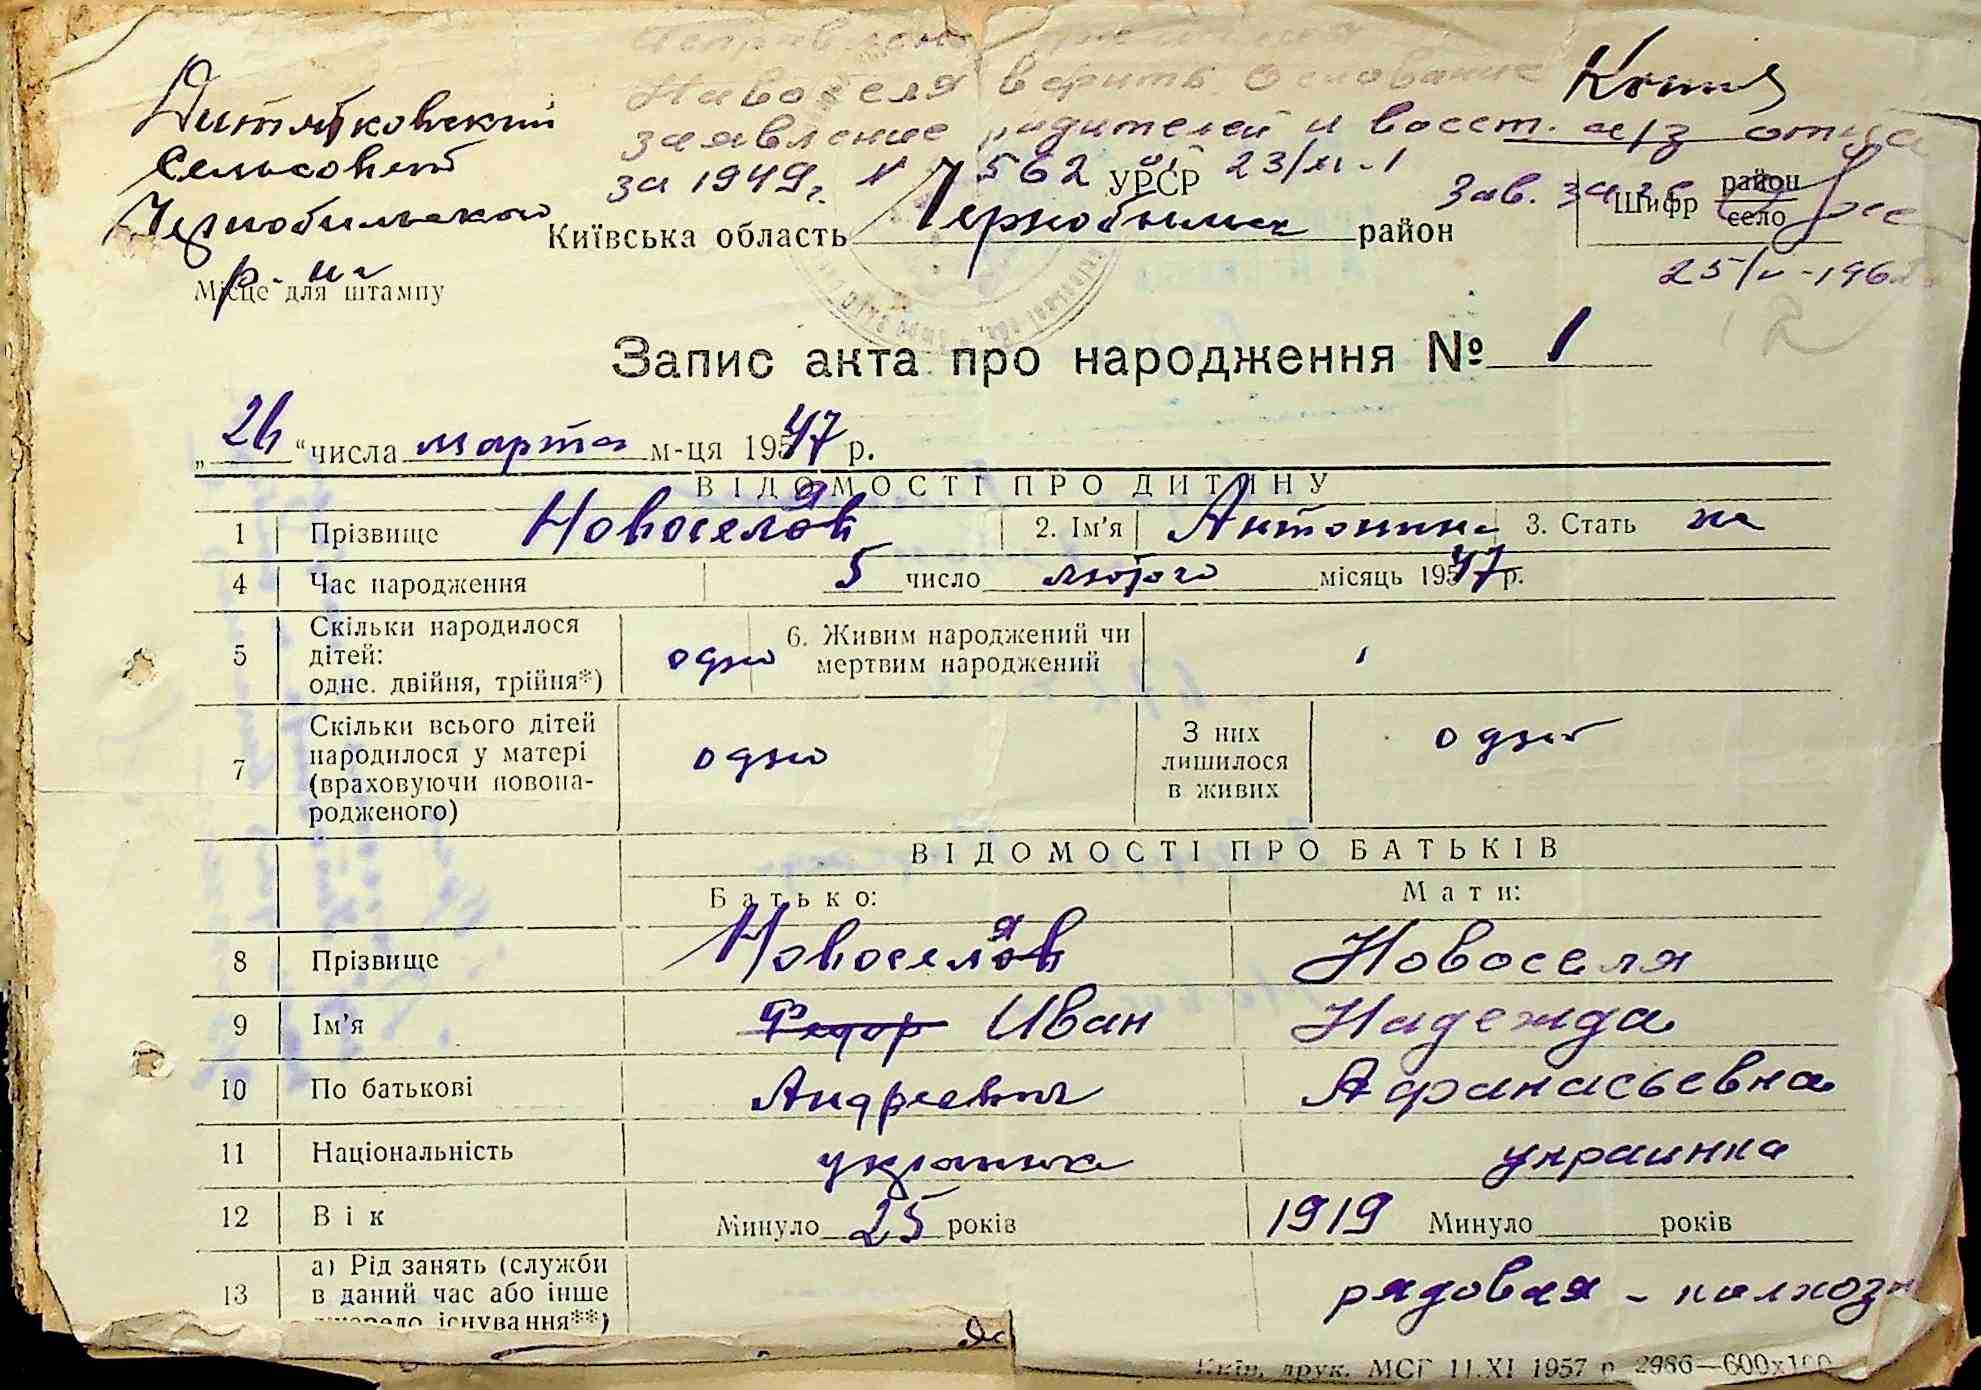 Копия
Дитятковский
сельсовет
Чернобильского
р-на
Місце для штампу
Новоселя верить. Основание
заявление родителей и восст. а/з отца
за 1949г. № 562 23/XI-1
УРСР
Київська область Чернобильск район
Зав.
Шифр район
село
25/V-196
Запис акта про народження № 1
„26“ числа марта м-ця 1947 р.
ВІДОМОСТІ ПРО ДИТИНУ
1 Прізвище Новоселя 2. Ім'я Антонина 3. Стать ж
4 Час народження 5 число лютого місяць 1947 р.
5 Скільки народилося
дітей:
одне, двійня, трійня*) одно 6. Живим народжений чи
мертвим народжений
7 Скільки всього дітей
народилося у матері
(враховуючи новона-
родженого) одно З них
лишилося
в живих одно
ВІДОМОСТІ ПРО БАТЬКІВ
Батько: Мати:
8 Прізвище Новоселя Новоселя
9 Ім'я Федор Иван Надежда
10 По батькові Андреевич Афанасьевна
11 Національність украинка
12 Вік Минуло 25 років 1919 Минуло років
13 а) Рід занять (служби
в даний час або інше
джерело існування**) рядовая - колхозн
Київ, друк. МСГ 11.XI 1957 р. 2986—600х100